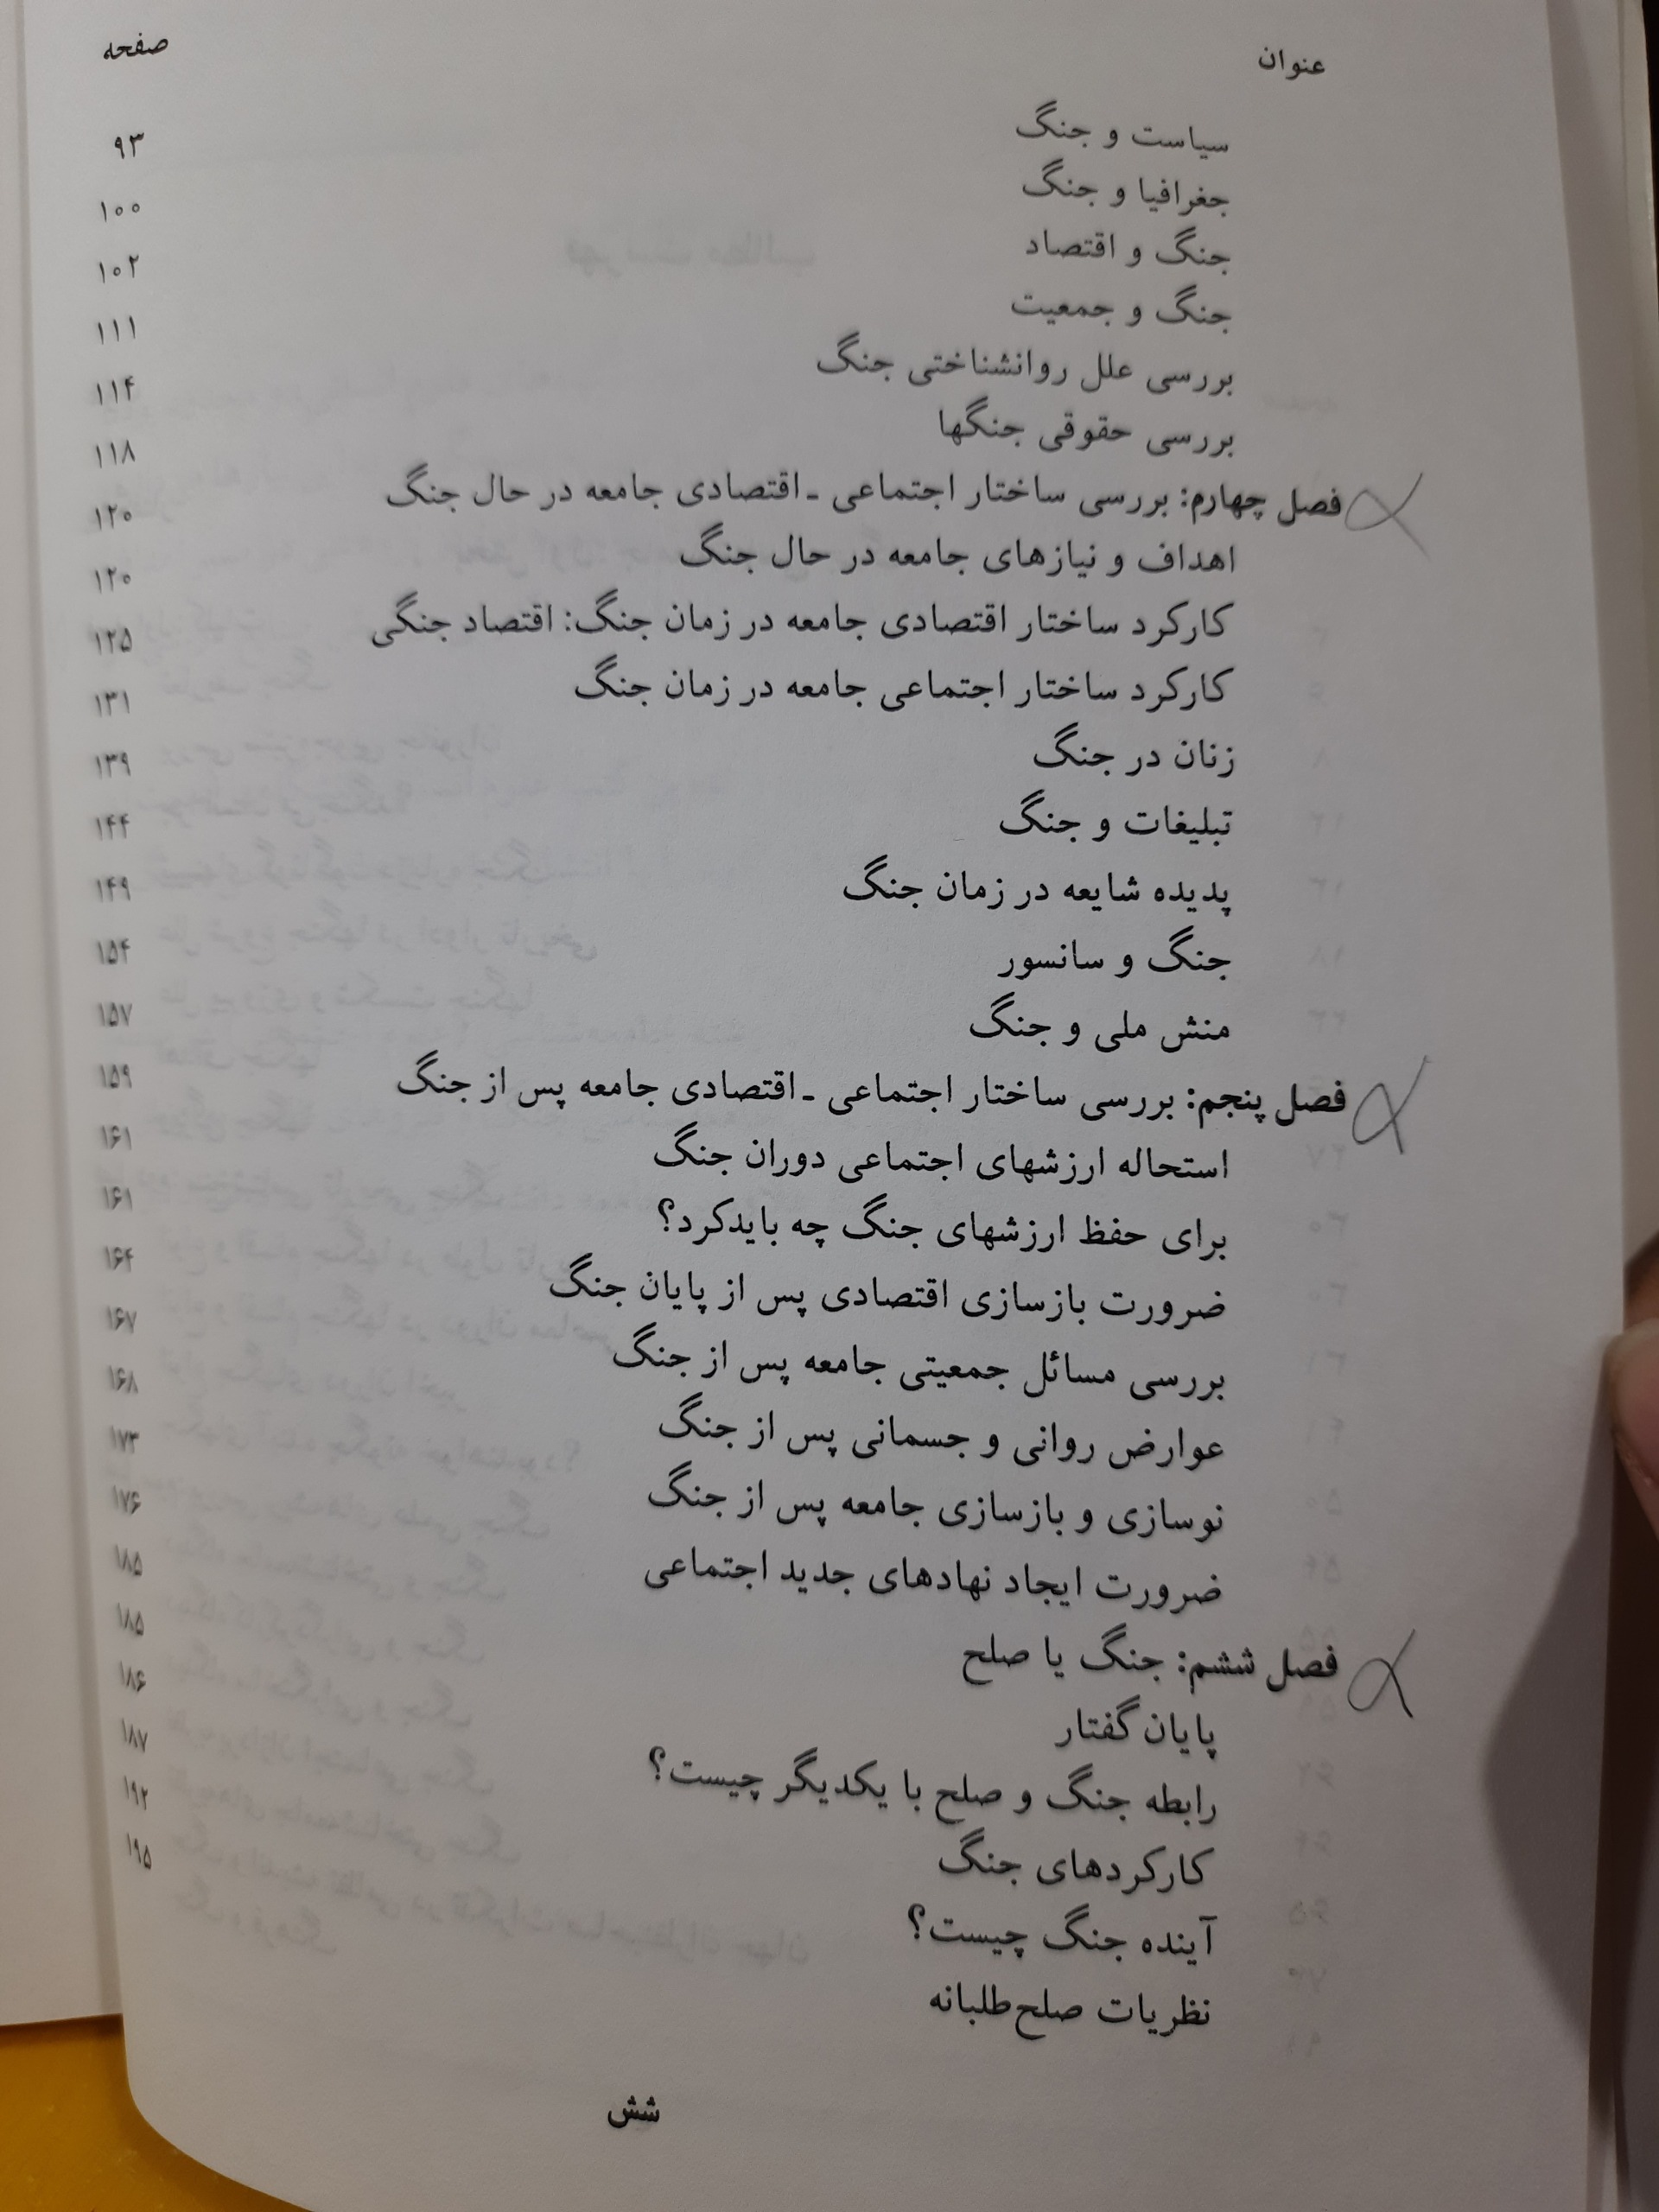 عنوان صفحه
سیاست و جنگ ۹۳
جغرافیا و جنگ ۱۰۰
جنگ و اقتصاد ۱۰۲
جنگ و جمعیت ۱۱۱
بررسی علل روانشناختی جنگ ۱۱۴
بررسی حقوقی جنگها ۱۱۸
فصل چهارم: بررسی ساختار اجتماعی ـ اقتصادی جامعه در حال جنگ ۱۲۰
اهداف و نیازهای جامعه در حال جنگ ۱۲۰
کارکرد ساختار اقتصادی جامعه در زمان جنگ: اقتصاد جنگی ۱۲۵
کارکرد ساختار اجتماعی جامعه در زمان جنگ ۱۳۱
زنان در جنگ ۱۳۹
تبلیغات و جنگ ۱۴۴
پدیده شایعه در زمان جنگ ۱۴۹
جنگ و سانسور ۱۵۴
منش ملی و جنگ ۱۵۷
فصل پنجم: بررسی ساختار اجتماعی ـ اقتصادی جامعه پس از جنگ ۱۵۹
استحاله ارزشهای اجتماعی دوران جنگ ۱۶۱
برای حفظ ارزشهای جنگ چه بایدکرد؟ ۱۶۱
ضرورت بازسازی اقتصادی پس از پایان جنگ ۱۶۴
بررسی مسائل جمعیتی جامعه پس از جنگ ۱۶۷
عوارض روانی و جسمانی پس از جنگ ۱۶۸
نوسازی و بازسازی جامعه پس از جنگ ۱۷۳
ضرورت ایجاد نهادهای جدید اجتماعی ۱۷۶
فصل ششم: جنگ یا صلح ۱۸۵
پایان گفتار ۱۸۵
رابطه جنگ و صلح با یکدیگر چیست؟ ۱۸۶
کارکردهای جنگ ۱۸۷
آینده جنگ چیست؟ ۱۹۲
نظریات صلح‌طلبانه ۱۹۵
شش